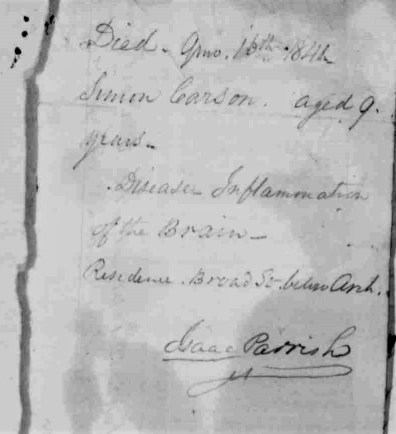 Died. 9mo. 16th 1842
Simon Carson. aged 9.
years.
Disease Inflammation
of the Brain
Residence. Broad St. below Arch.
Isaac Parrish